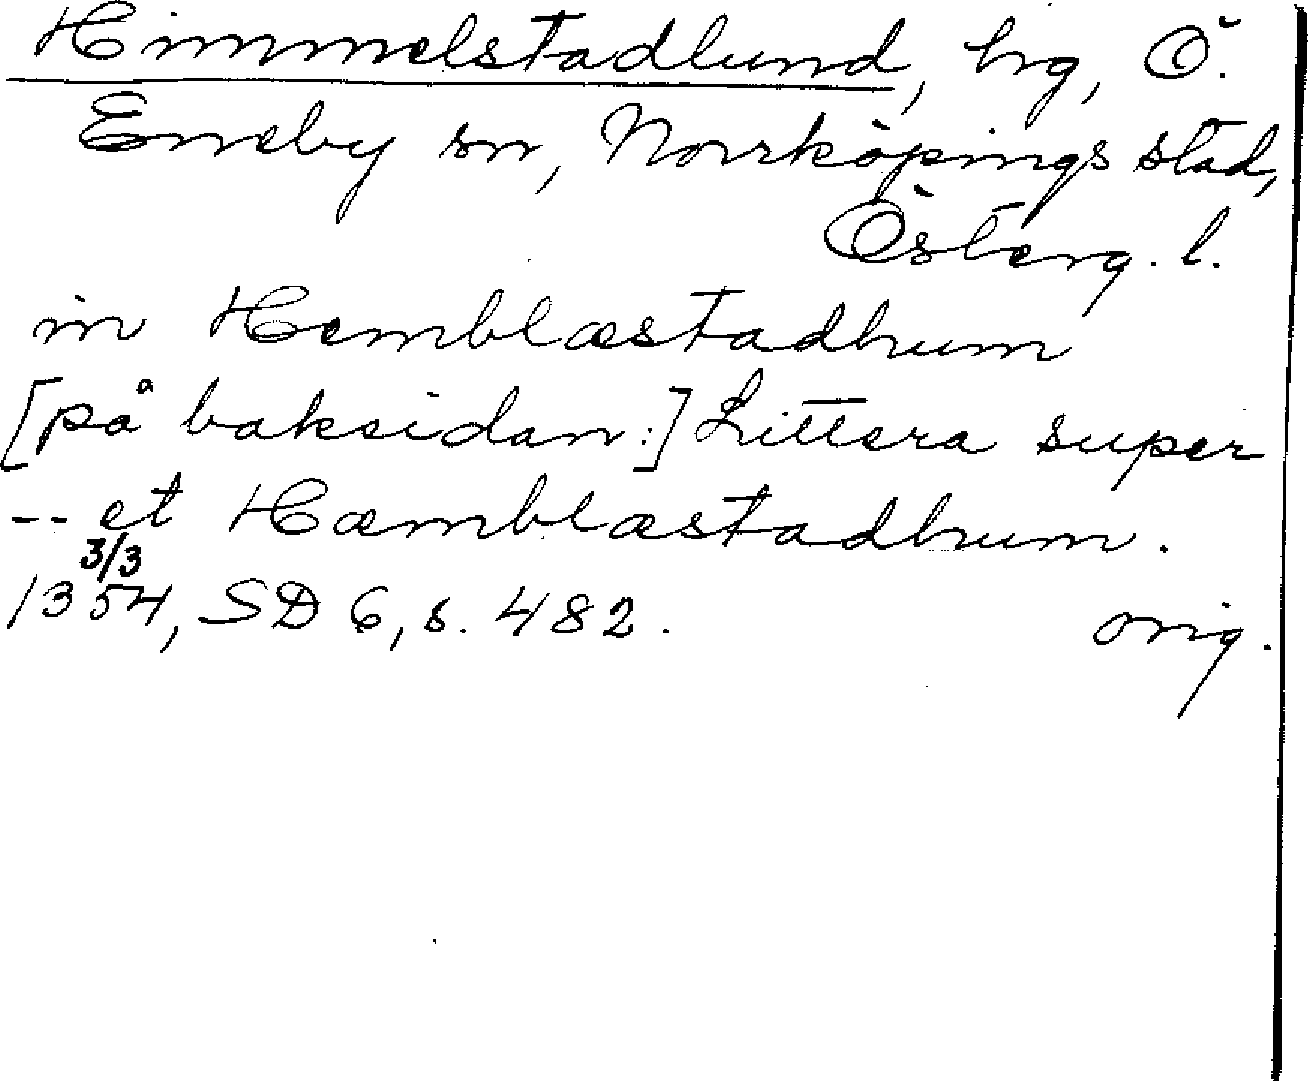 Himmelstadlund, hg, Ö.
Eneby sn, Norrköpings stad,
Österg. l.
in Hemblæstadhum
[på baksidan:] Littera super
-- et Hæmblæstadhum.
3/3
1354, SD 6, s. 482. orig.